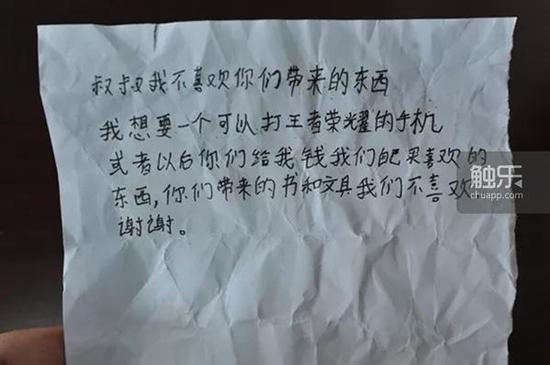 叔叔我不喜欢你们带来的东西
我想要一个可以打王者荣耀的手机
或者以后你们给我钱我们自己买喜欢的
东西,你们带来的书和文具我们不喜欢
谢谢。
触乐
chuapp.com